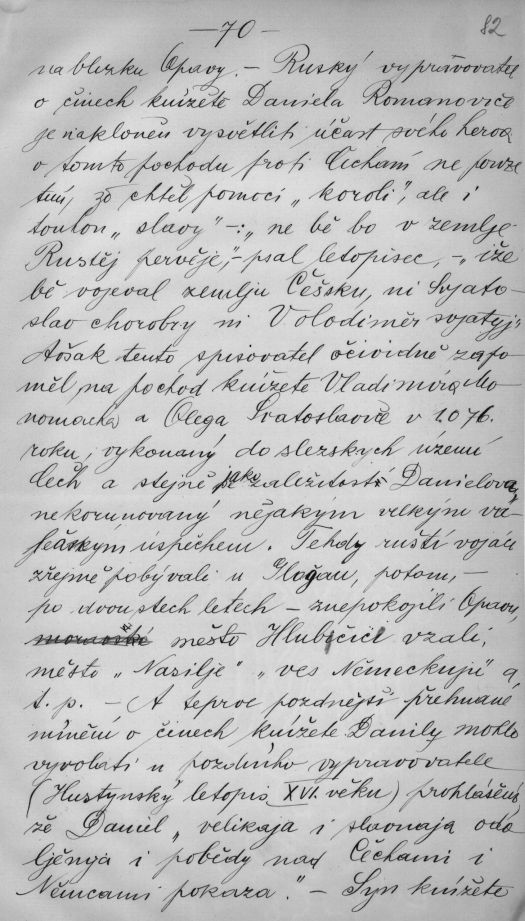 — 70 —
82
nablizku Opavy. – Ruský vypravovatel
o činech knížete Daniela Romanoviče
je nakloněn vysvětliti účast svého heroa
o tomto pochodu proti Čecham ne pouze
tím, že chtěl pomoci „koroli", ale i
touhou „slavy" –: „ne bě bo v zemlje
Rustěj pervěje," – psal letopisec, – „iže
bě vojeval zemlju Češsku, ni Svjato-
slav chorobry ni Volodiměr svjatyj".
Avšak tento spisovatel očividně zapo-
měl na pochod knížete Vladimira Mo-
nomacha a Olega Svatoslaviče v 1076.
roku, vykonaný do slezskych území
Čech a stejně jako záležitost Danielova,
nekorunovaný nějakým velkým vá-
lečským úspěchem. Tehdy ruští vojáci
zřejmě pobývali u Glogau, potom, –
po dvoustech letech – znepokojili Opavu,
město Hlubičici vzali,
město „Nasilje" „ves Německuju" a
t. p. – A teprve pozdnější přehnané
mínění o činech knížete Danily mohlo
vyvolati u pozdního vypravovatele
(Hustynský letopis XVI. věku) prohlášení,
že Daniel „velikaja i slavnaja odo-
ljěnya i pobědy nad Čechami i
Němcami pokaza." – Syn knížete